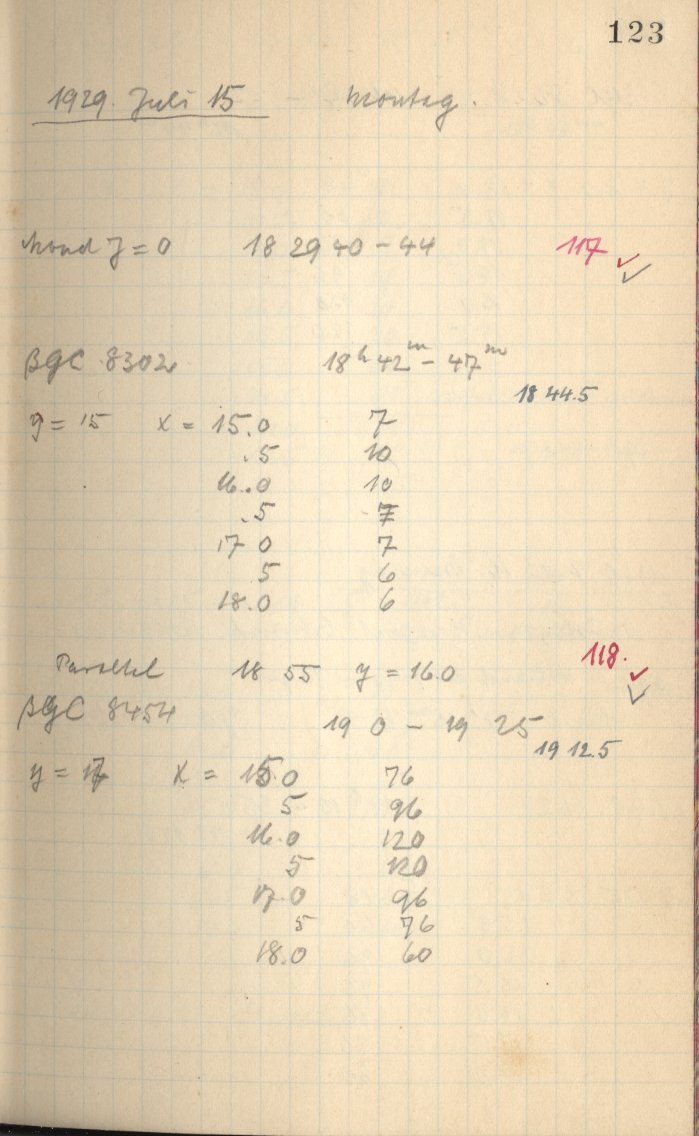 123
1929. Juli 15 Montag.
Mond y = 0 18 29 40 - 44 117
βGC 8302 18h 42m - 47m
18 44.5
y = 15 x = 15.0 7
.5 10
16.0 10
.5 7
17 0 7
5 6
18.0 6
118.
Parallel 18 55 y = 16.0
βGC 8454 19 0 - 19 25
19 12.5
y = 17 x = 15.0 76
5 96
16.0 120
5 120
17.0 96
5 76
18.0 60